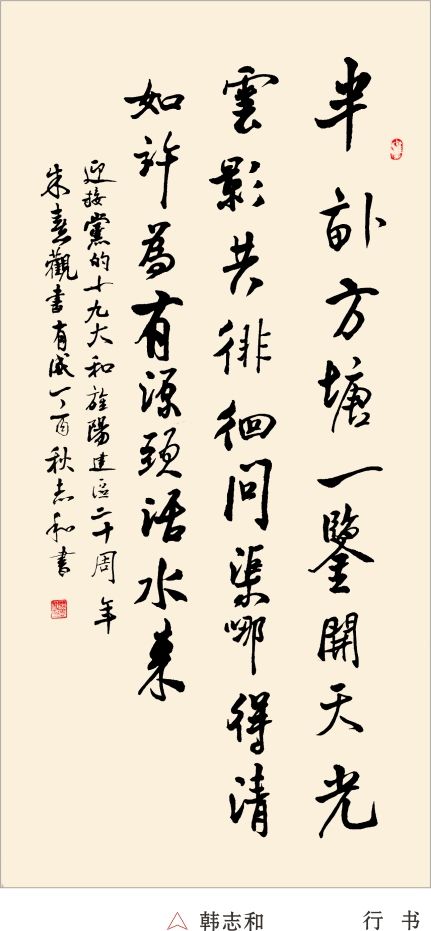 半畝方塘一鑒開天光
雲影共徘徊問渠哪得清
如許為有源頭活水来
迎接黨的十九大和旌陽建區二十周年
朱熹觀書有感丁酉秋志和書
韩志和 行书